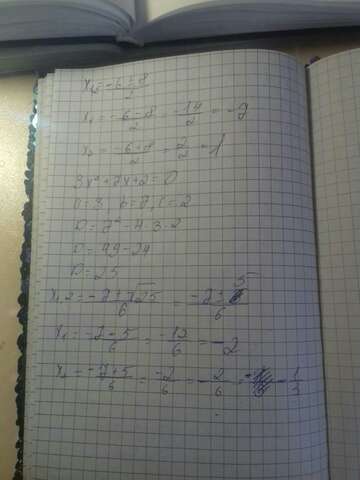 x₁,₂ = -6 ± 8 / 2
x₁ = -6 - 8 / 2 = -14 / 2 = -7
x₂ = -6 + 8 / 2 = 2 / 2 = 1
3x² + 7x + 2 = 0
a = 3, b = 7, c = 2
D = 7² - 4 · 3 · 2
D = 49 - 24
D = 25
x₁,₂ = -7 ± √25 / 6 = -7 ± 5 / 6
x₁ = -7 - 5 / 6 = -12 / 6 = -2
x₂ = -7 + 5 / 6 = -2 / 6 = -2 / 6 = - 1 / 3